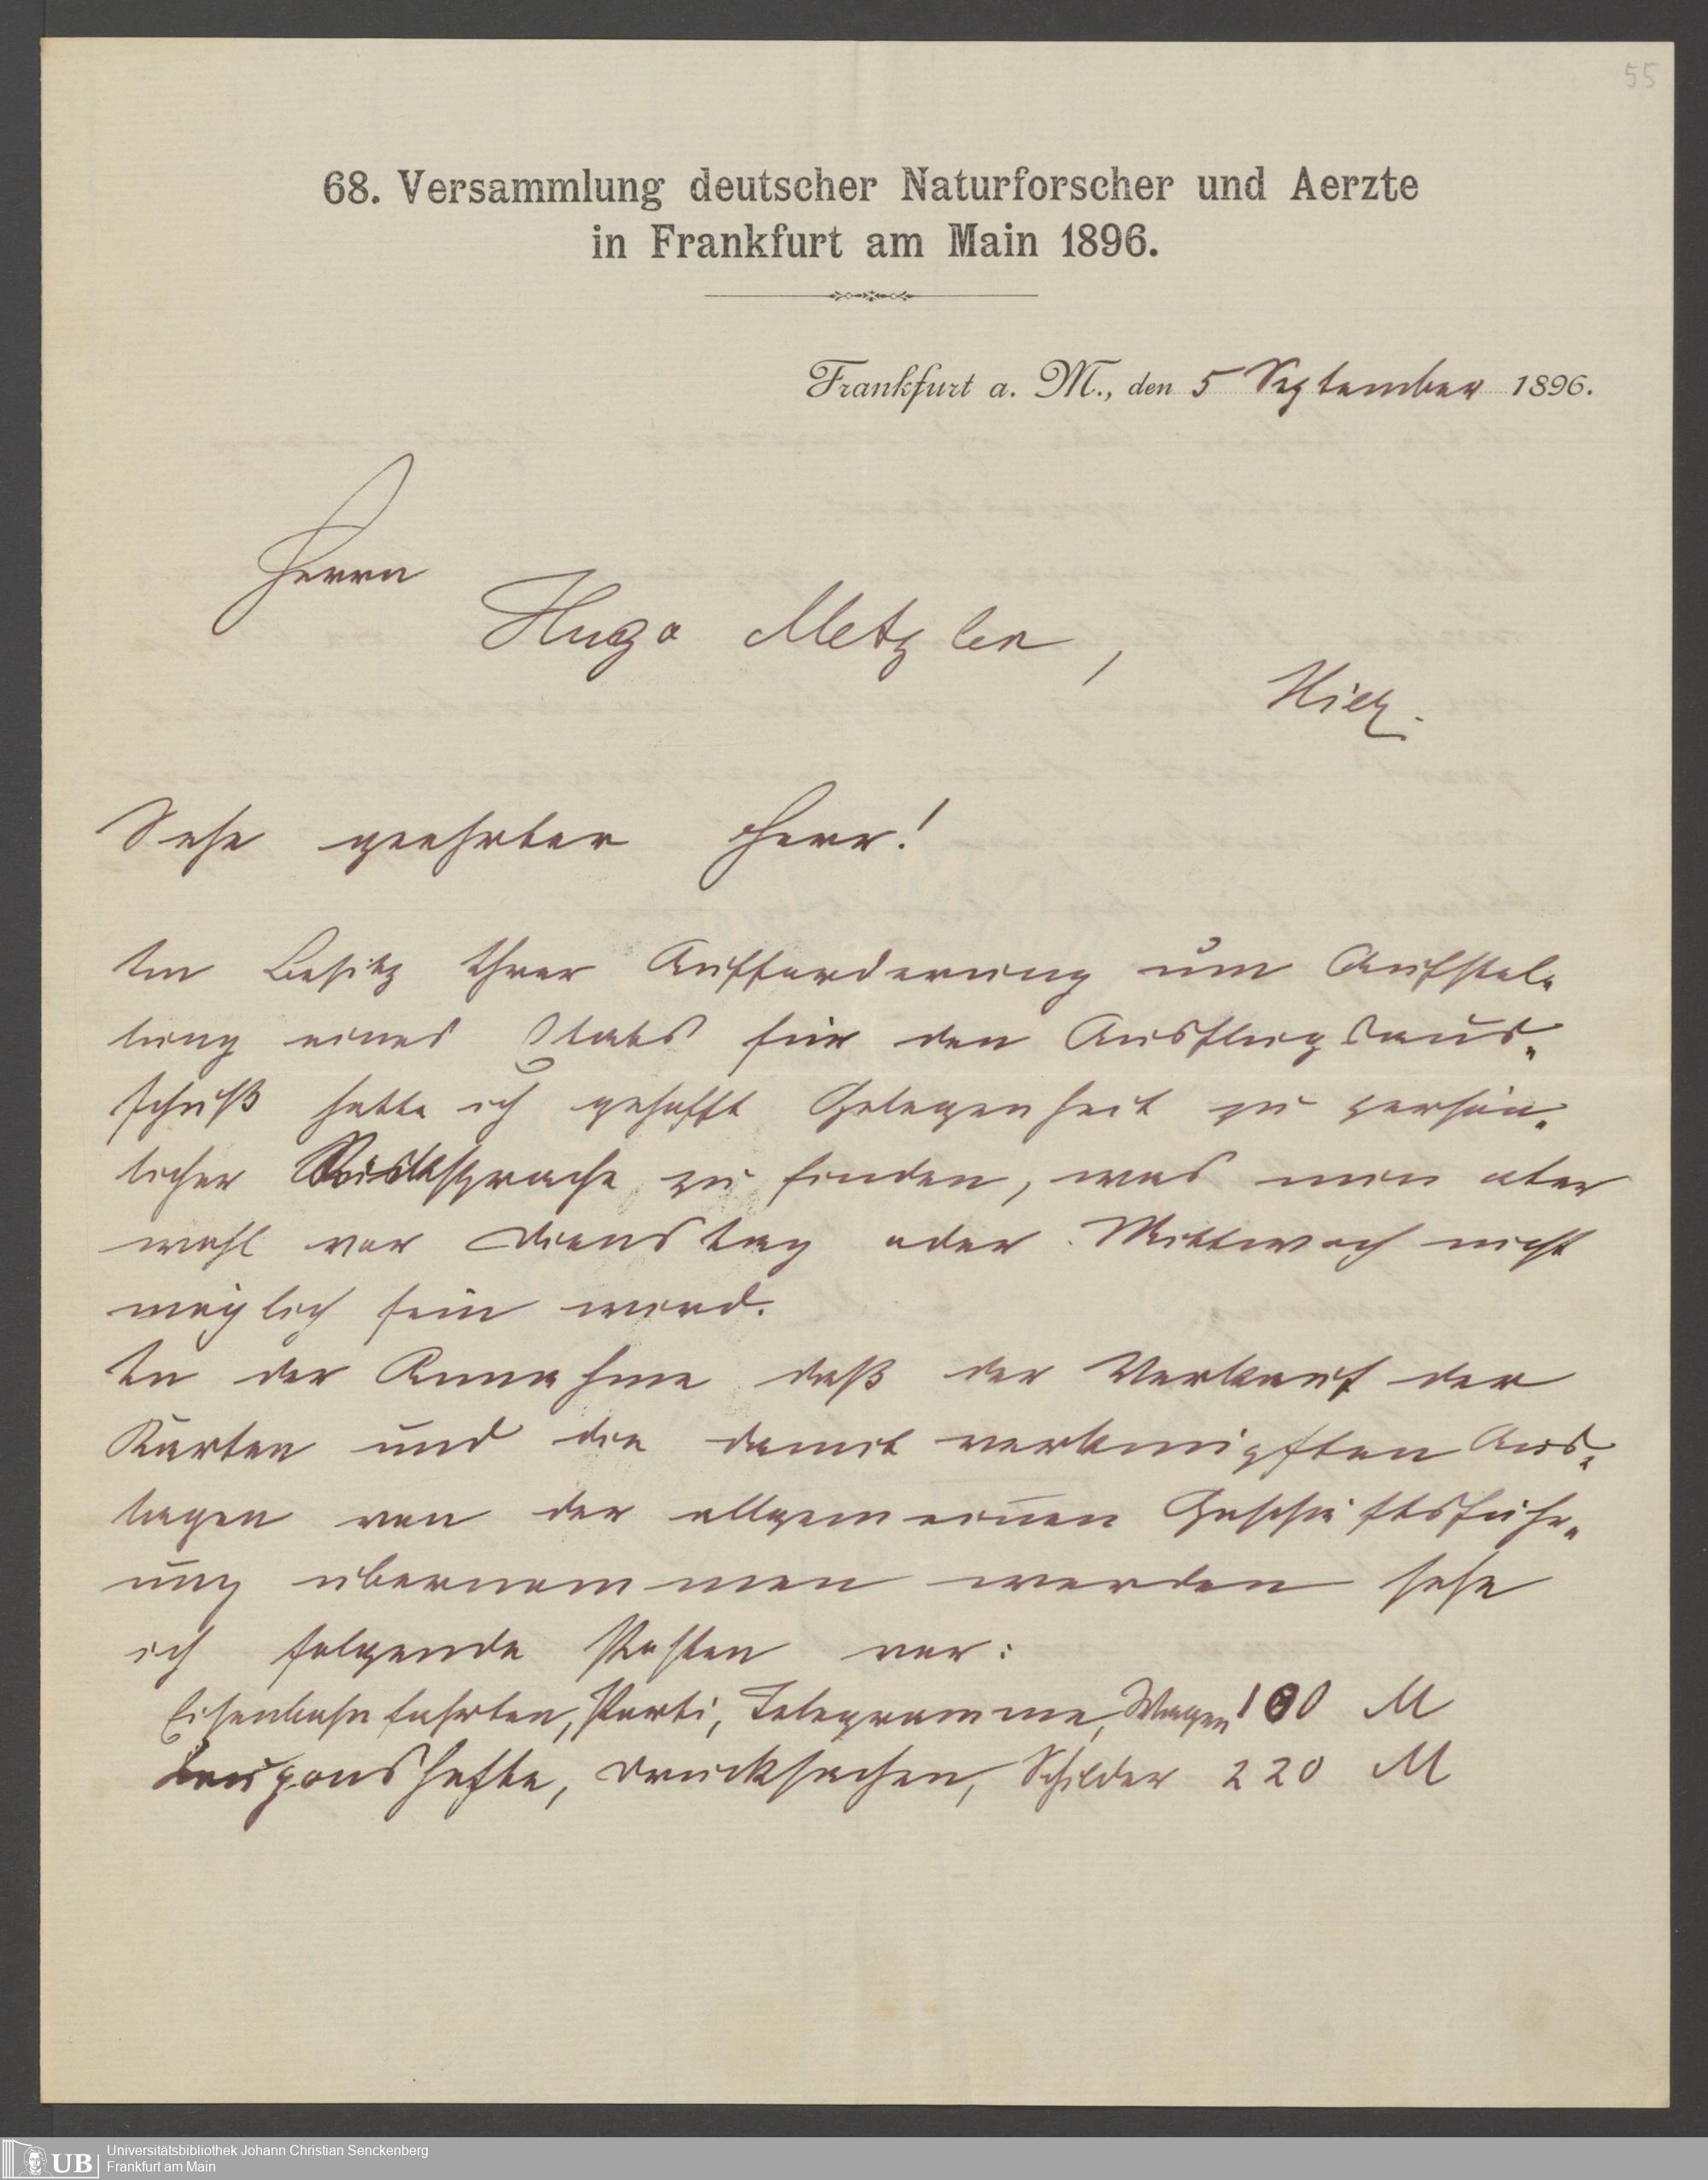 55
68. Versammlung deutscher Naturforscher und Aerzte
in Frankfurt am Main 1896.
Frankfurt a. M., den 5 September 1896.
Herrn
Hugo Metzler,
Hier.
Sehr geehrter Herr!
Im Besitz Ihrer Aufforderung um Aufstel-
lung eines Etats für den Ausflugsaus-
schuß hatte ich gehofft Gelegenheit zu persön-
licher Rücksprache zu finden, was nun aber
wohl vor Dienstag oder Mittwoch nicht
möglich sein wird.
In der Annahme daß der Verkauf der
Karten und die damit verknüpften Aus-
lagen von der allgemeinen Geschäftsführ-
ung übernommen werden sehe
ich folgende Posten vor:
Eisenbahnfahrten, Porti, Telegramme, Wagen 100 M
Couponshefte, Drucksachen, Schilder 220 M
UB
Universitätsbibliothek Johann Christian Senckenberg
Frankfurt am Main